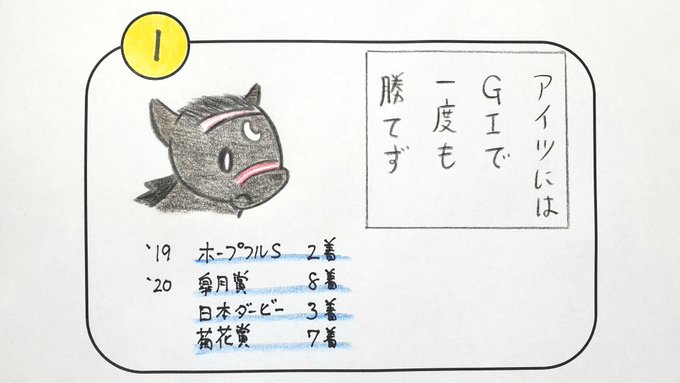 1
アイツには
GIで
一度も
勝てず
'19 ホープフルS 2着
'20 皐月賞 8着
日本ダービー 3着
菊花賞 7着